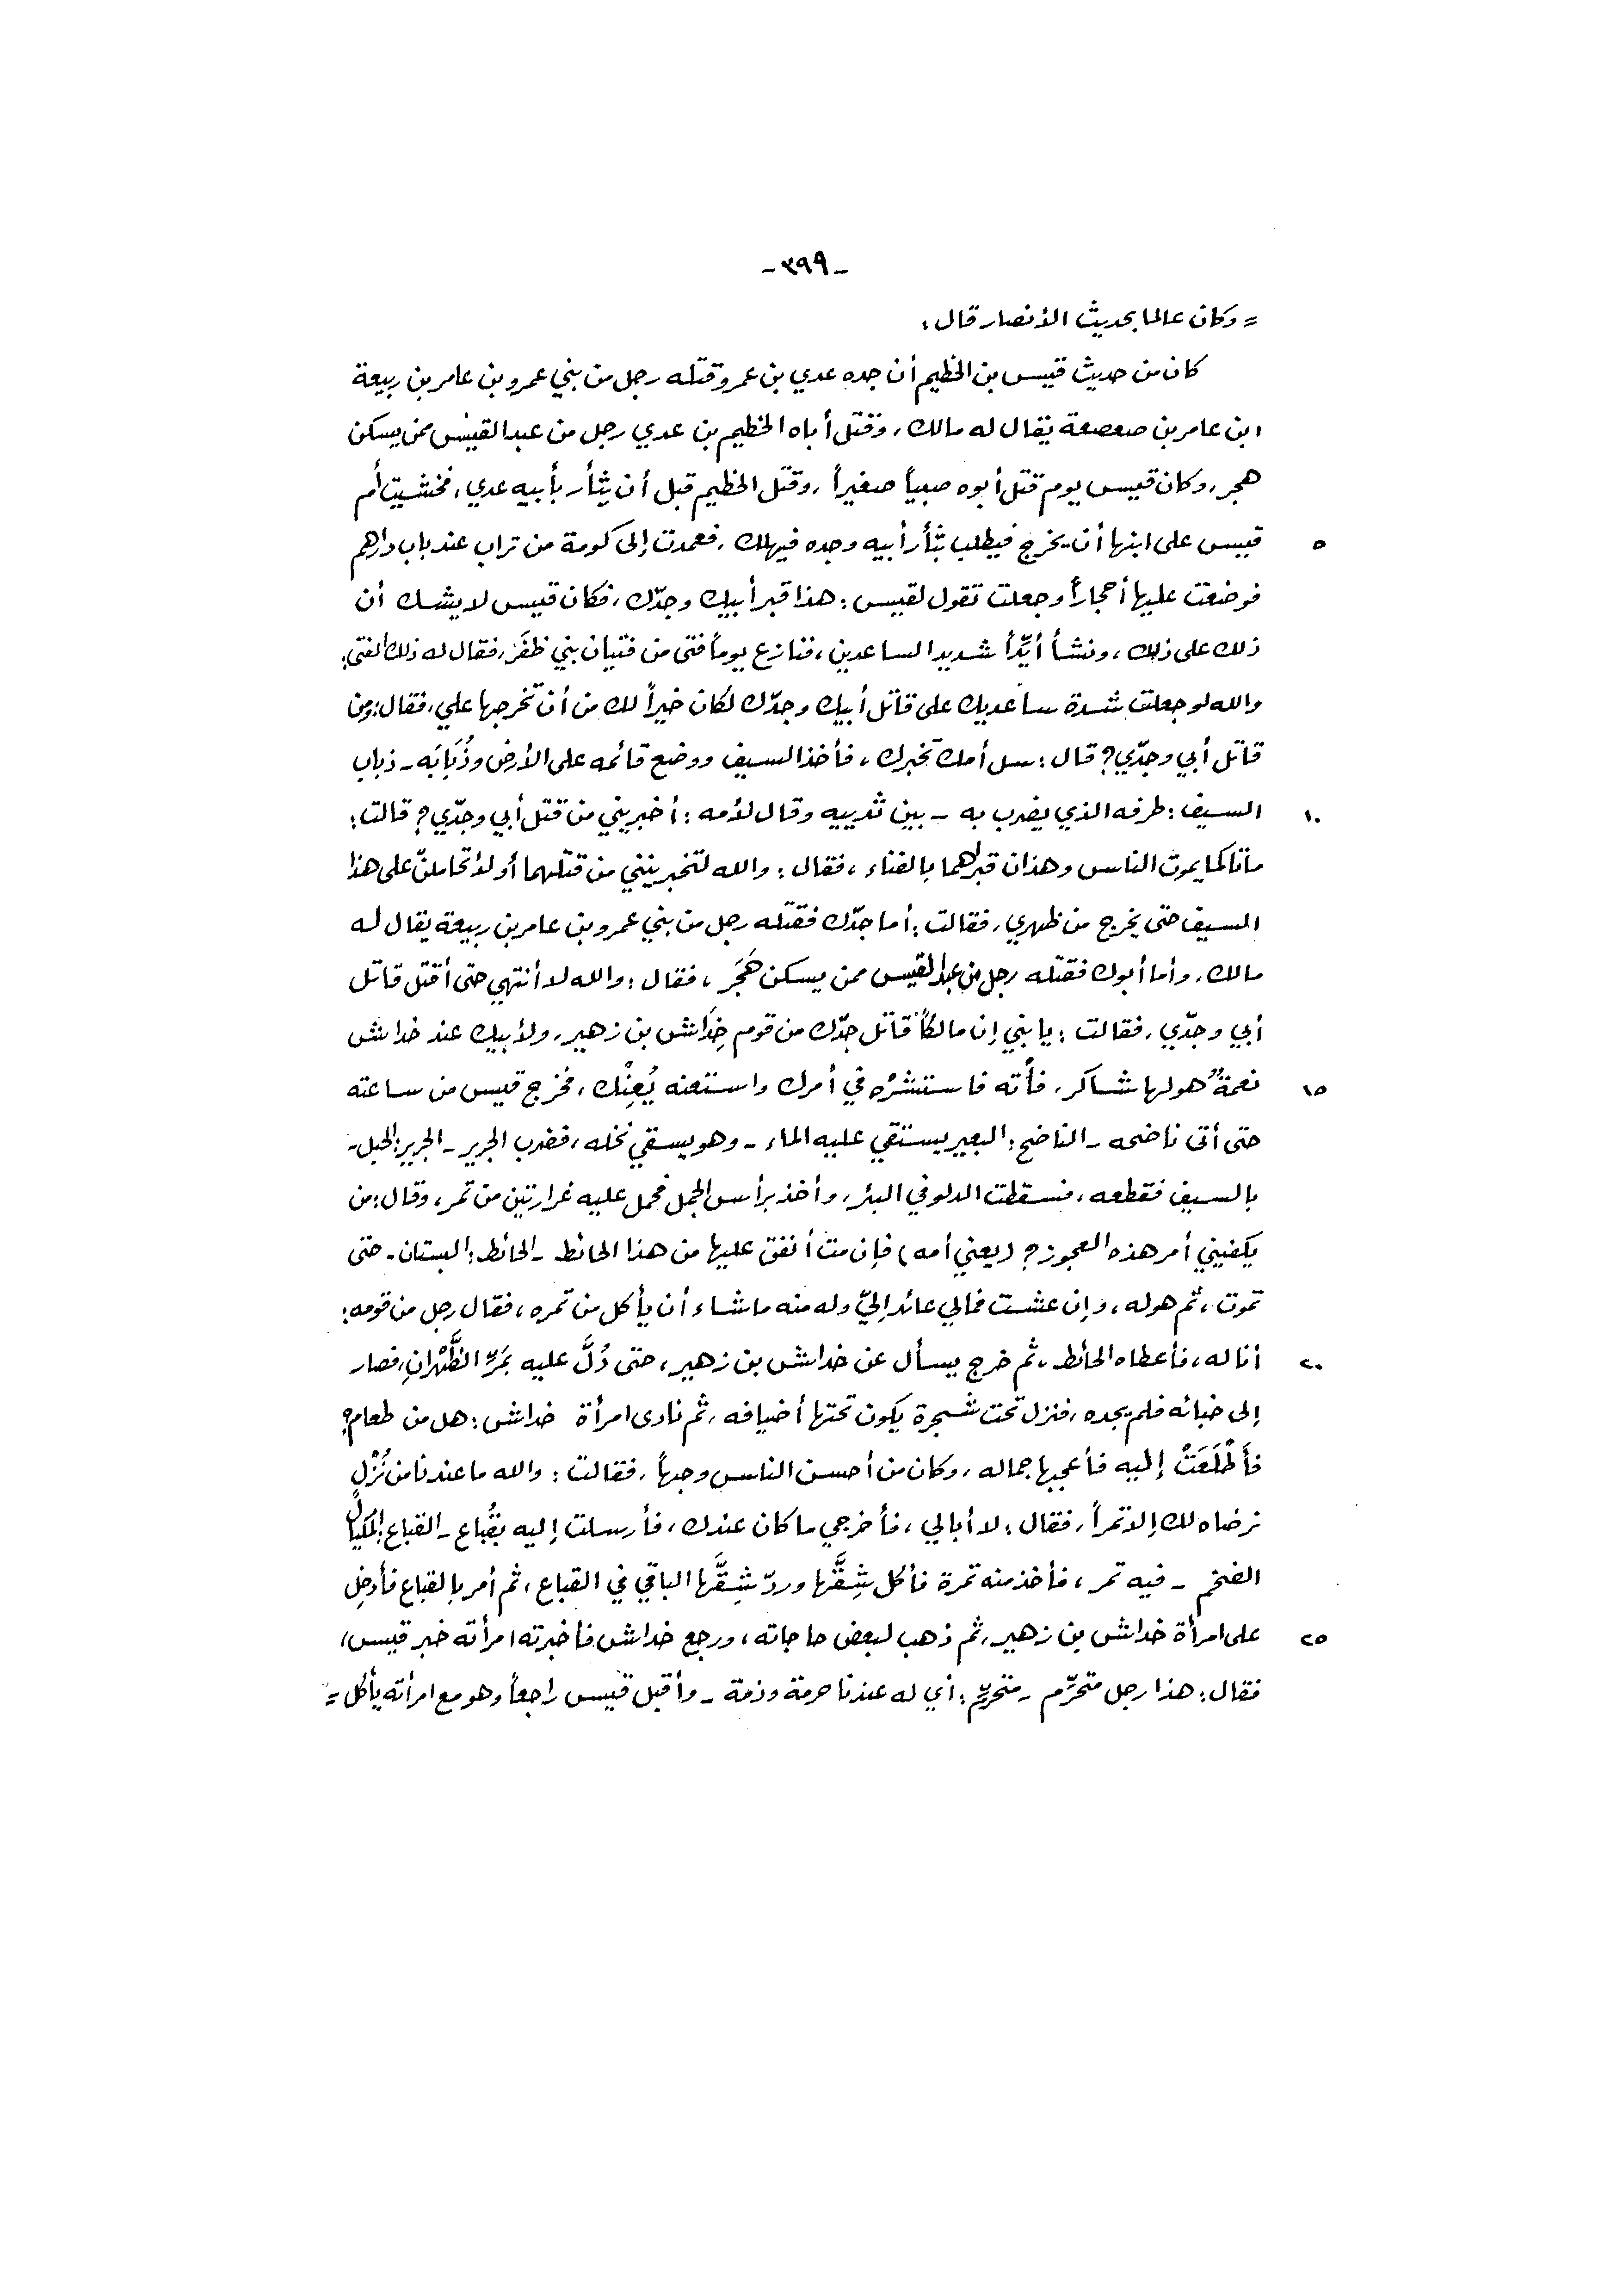 - ٣٩٩ -
= وكان عالما بحديث الأنصار قال:
كان من حديث قيس بن الخطيم أن جده عدي بن عمرو قتله رجل من بني عمرو بن عامر بن ربيعة
ابن عامر بن صعصعة يقال له مالك، وقتل أباه الخطيم بن عدي رجل من عبد القيس ممن يسكن
هجر، وكان قيس يوم قتل أبوه صبياً صغيراً، وقتل الخطيم قبل أن يثأر بأبيه عدي، فخشيت أم
٥ قيس على ابنها أن يخرج فيطلب بثأر أبيه وجده فيهلك، فعمدت إلى كومة من تراب عند باب دارهم
فوضعت عليها أحجاراً وجعلت تقول لقيس: هذا قبر أبيك وجدّك، فكان قيس لا يشك أن
ذلك على ذلك، ونشأ أيِّداً شديد الساعدين، فنازع يوماً فتى من فتيان بني ظفَر، فقال له ذلك الفتى:
والله لو جعلت شدة ساعديك على قاتل أبيك وجدّك لكان خيراً لك من أن تخرجها علي، فقال: ومن
قاتل أبي وجدّي؟ قال: سل أمك تخبرك، فأخذ السيف ووضع قائمه على الأرض وذُبَابَه - ذباب
١٠ السيف: طرفه الذي يضرب به - بين ثدييه وقال لأمه: أخبريني من قتل أبي وجدّي؟ قالت:
ماتا كما يموت الناس وهذان قبراهما بالفناء، فقال: والله لتخبرينني من قتلهما أو لأتحاملنّ على هذا
السيف حتى يخرج من ظهري، فقالت: أما جدّك فقتله رجل من بني عمرو بن عامر بن ربيعة يقال له
مالك، وأما أبوك فقتله رجل من عبد القيس ممن يسكن هَجَر، فقال: والله لا أنتهي حتى أقتل قاتل
أبي وجدّي، فقالت: يا بني إن مالكاً قاتل جدّك من قوم خِدَاش بن زهير، ولأبيك عند خداش
١٥ نعمةٌ هو لها شاكر، فأْته فاستشرْه في أمرك واستعنه يُعِنْك، فخرج قيس من ساعته
حتى أتى ناضحه - الناضح: البعير يستقي عليه الماء - وهو يسقي نخله، فضرب الجرير - الجرير: الحبل -
بالسيف فقطعه، فسقطت الدلو في البئر، وأخذ برأس الجمل فحمل عليه غرارتين من تمر، وقال: من
يكفيني أمر هذه العجوز؟ (يعني أمه) فإن مت أنفق عليها من هذا الحائط - الحائط: البستان - حتى
تموت، ثم هو له، وإن عشت فمالي عائد إليّ وله منه ما شاء أن يأكل من تمره، فقال رجل من قومه:
٢٠ أنا له، فأعطاه الحائط، ثم خرج يسأل عن خداش بن زهير، حتى دُلَّ عليه بمَرِّ الظَّهْرانِ، فصار
إلى خبائه فلم يجده، فنزل تحت شجرة يكون تحتها أضيافه، ثم نادى امرأة خداش: هل من طعام؟
فأَطْلَعَتْ إليه فأعجبها جماله، وكان من أحسن الناس وجهاً، فقالت: والله ما عندنا من نُزُلٍ
نرضاه لك إلا تمراً، فقال: لا أبالي، فأخرجي ما كان عندك، فأرسلت إليه بقُباع - القباع: المكيال
الضخم - فيه تمر، فأخذ منه تمرة فأكل شِقَّها وردّ شِقَّها الباقي في القباع، ثم أمر بالقباع فأدخِل
٢٥ على امرأة خداش بن زهير، ثم ذهب لبعض حاجاته، ورجع خداش فأخبرته امرأته خبر قيس،
فقال: هذا رجل متحرِّم - متحرِّم: أي له عندنا حرمة وذمة - وأقبل قيس راجعاً وهو مع امرأته يأكل =